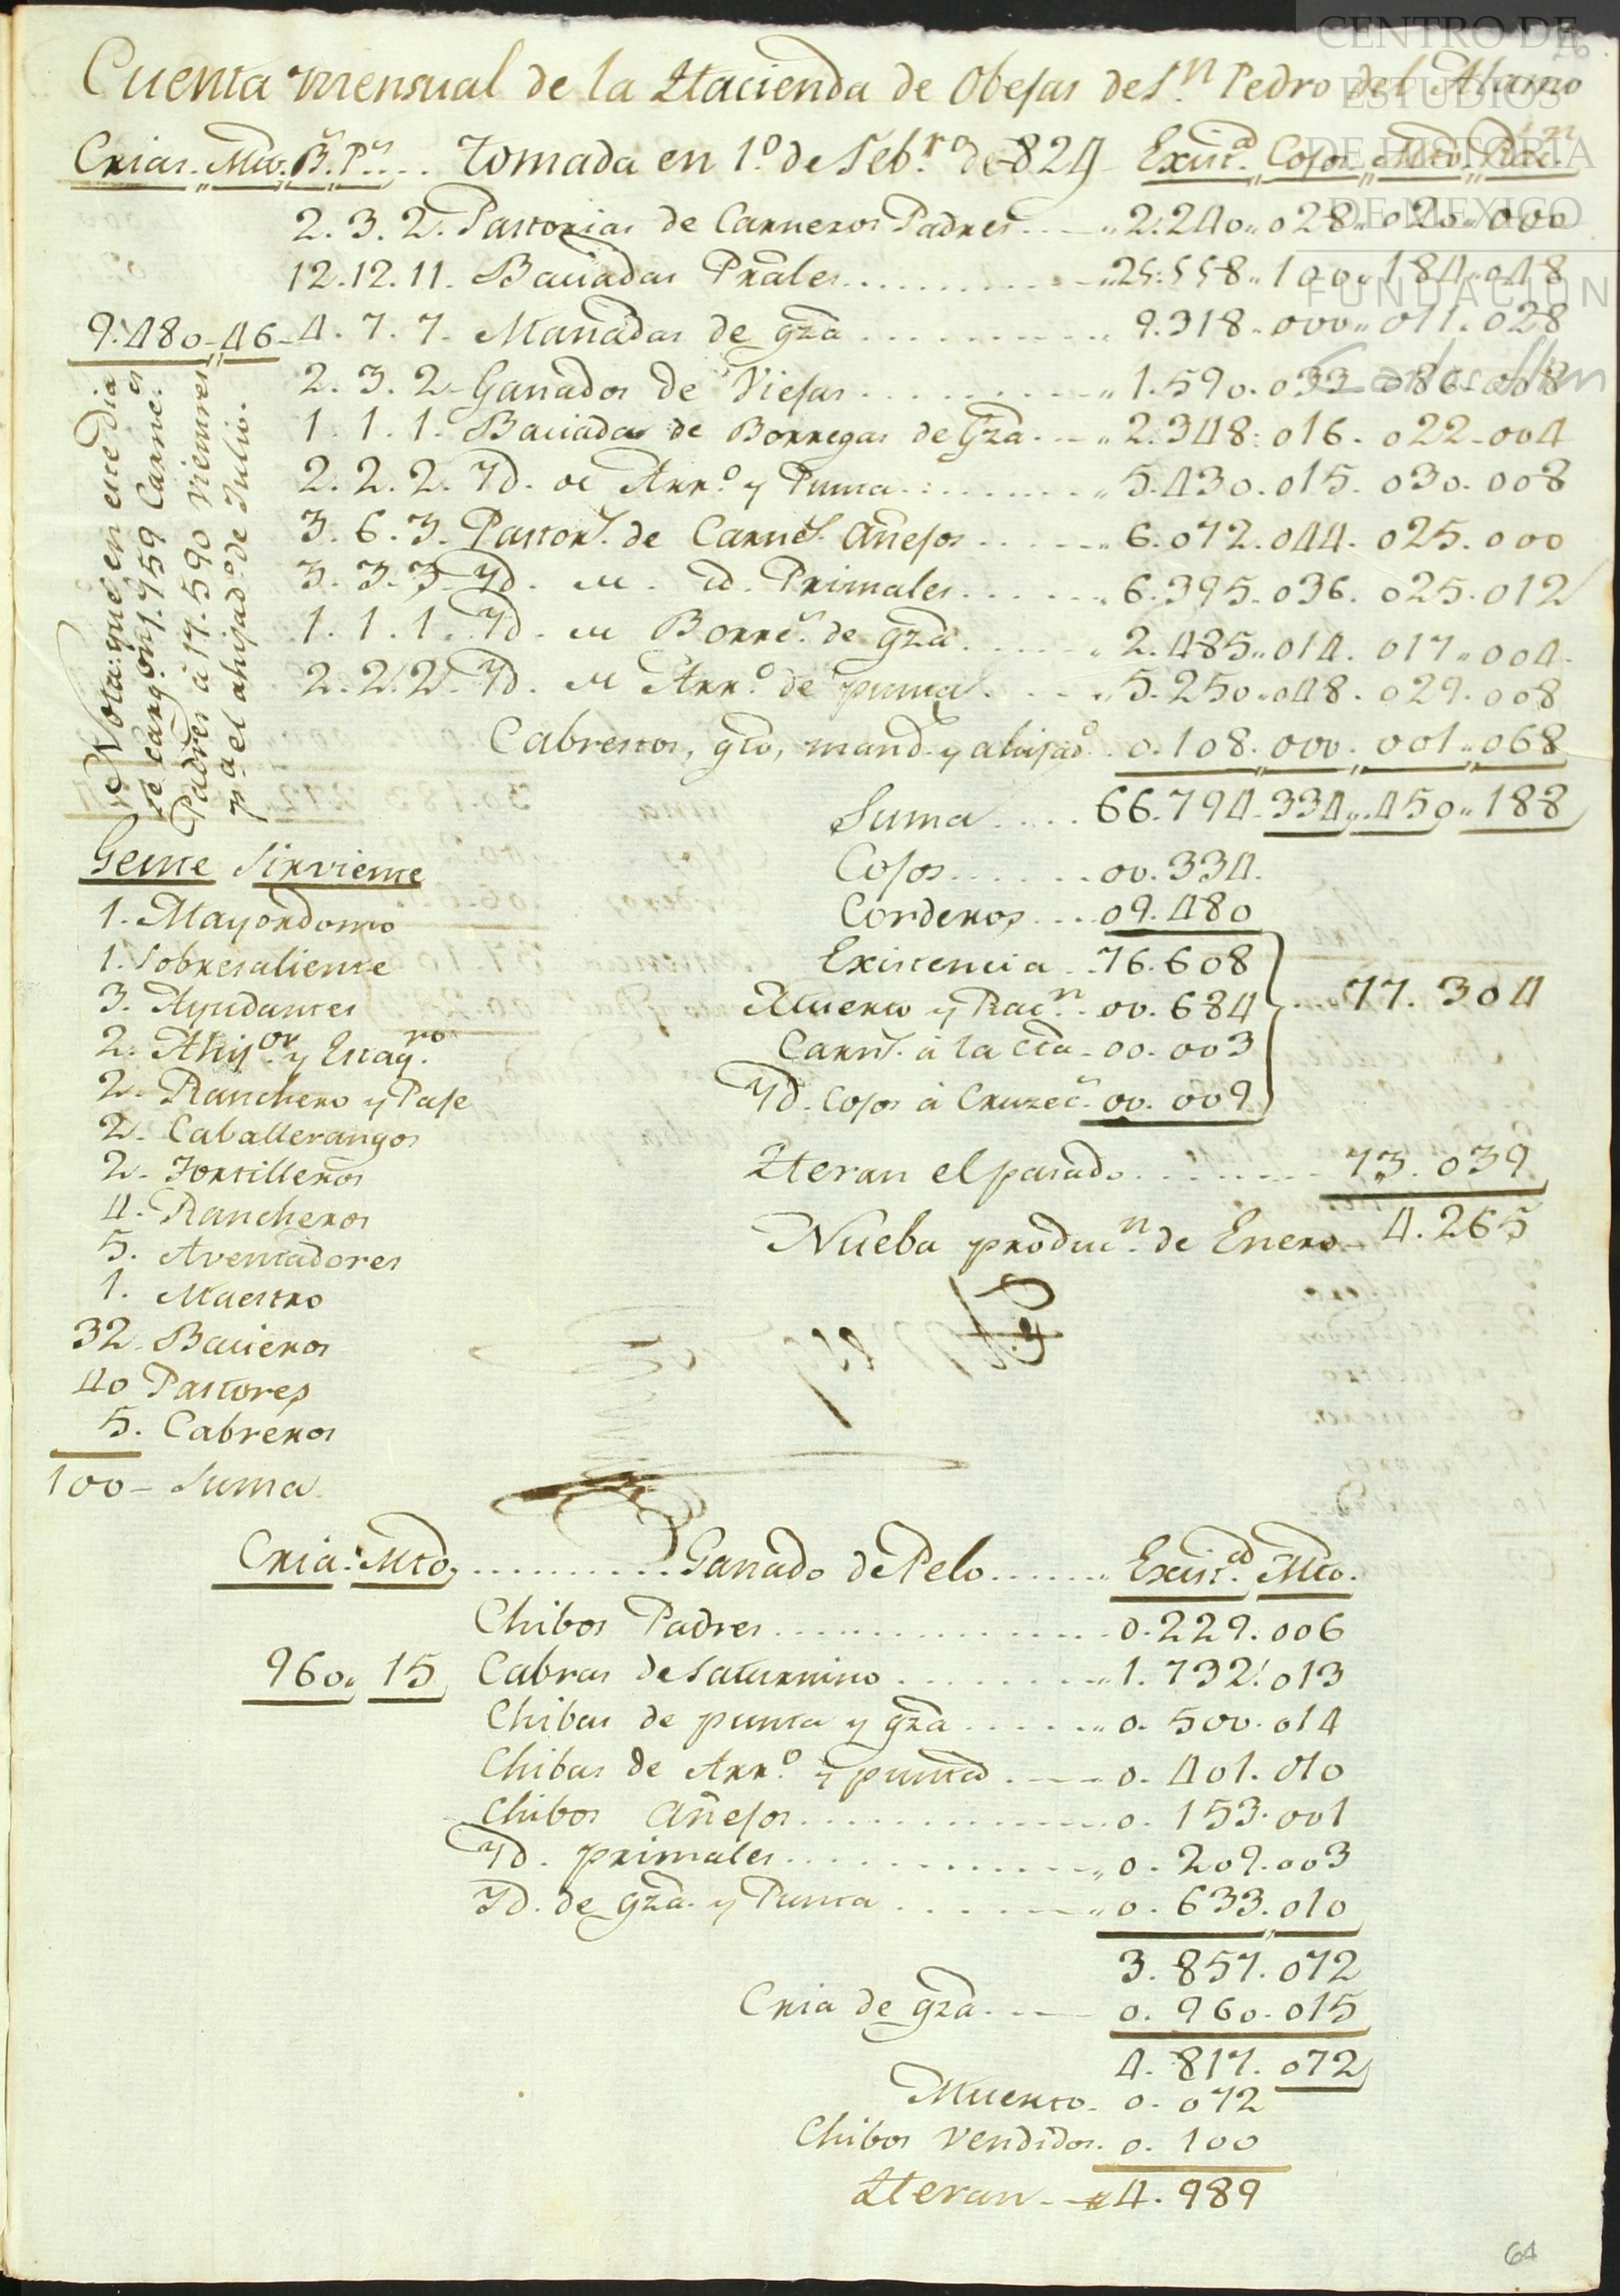 CENTRO DE
ESTUDIOS
DE HISTORIA
DE MEXICO
FUNDACIÓN
Carlos Slim
Cuenta mensual de la Hacienda de Obejas de Sn. Pedro del Alamo
Crias. Mto. B. Ps. .. Tomada en 1º de Febrº de 824 Exist.a Cojos Mto. Rac.n
2. 3. 2. Pastorias de Carneros Padres .. 2.240 .. 028 .. 020 .. 000
12. 12. 11. Baciadas Prales ........ 25.558 .. 100 .. 184 .. 048
9.480 - 46 - 4. 7. 7. Manadas de gza ........ 9.318 .. 000 .. 011 . 028
2. 3. 2. Ganados de Viejas ........ 1.590 . 033 . 086 . 008
1. 1. 1. Baciada de Borregas de Gza .. 2.348 : 016 . 022 . 004
2. 2. 2. Yd. de Arrº y Punta ........ 5.430 . 015 . 030 . 008
3. 6. 3. Pastors. de Carns. Añejos ...... 6.072 . 044 . 025 . 000
3. 3. 3. Yd. de id. Primales ...... 6.395 . 036 . 025 . 012
1. 1. 1. Yd. de Borrs. de gza ...... 2.485 .. 014 . 017 .. 004
2. 2. 2. Yd. de Arrº de punta .... 5.250 .. 048 . 029 . 008
Cabrestos, gto, mand. y ahijadº . 0.108 . 000 . 001 .. 068
Suma .... 66.794 . 334 .. 450 .. 188
Cojos ...... 00.334.
Corderos ... 09.480
Existencia .. 76.608
Muerto y Racn. 00.684 ... 77.304
Carns. a la cta - 00.003
Yd. Cojos a Cruzes - 00.009
Heran el pasado ........ 73.039
Nueba producn. de Enero - 4.265
Nota: que en este dia
se cargon 1.959 Carne.s
Padres a 17.590 Vientres
p.a el ahijadº de Julio.
Gente Sirviente
1. Mayordomo
1. Sobresaliente
3. Ayudantes
2. Ahijor. y Escaqro.
2. Ranchero y Paje
2. Caballerangos
2. Tortilleros
4. Rancheros
5. Aventadores
1. Maestro
32. Bacieros
40 Pastores
5. Cabreros
100 - Suma
Cria. Mto, .......... Ganado de Pelo ....... Exist.a Mto.
Chibos Padres ............ 0.229.006
960 . 15 Cabras de Saturnino ........ 1.732.013
Chibas de punta y gza ...... 0.500.014
Chibas de Arrº y punta .... 0.401.010
Chibos Añejos ............ 0.153.001
Yd. primales ............ 0.209.003
Yd. de gza. y Punta ...... 0.633.010
3.857.072
Cria de gza .... 0.960.015
4.817.072
Muerto - 0.072
Chibos Vendidos. 0.100
Heran - 4.989
64